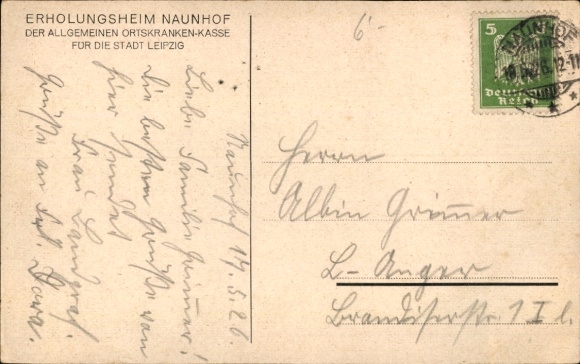 ERHOLUNGSHEIM NAUNHOF
DER ALLGEMEINEN ORTSKRANKEN-KASSE
FÜR DIE STADT LEIPZIG
Naunhof 17.5.26.
Liebe Familie Grimmer!
Die besten Grüße von
hier sendet
Frau Landgraf.
Grüße an Frl. Dora.
6
5
Deutsches
Reich
NAUNHOF
Herrn
Albin Grimmer
L-Anger
Brandiserstr. 1 I l.